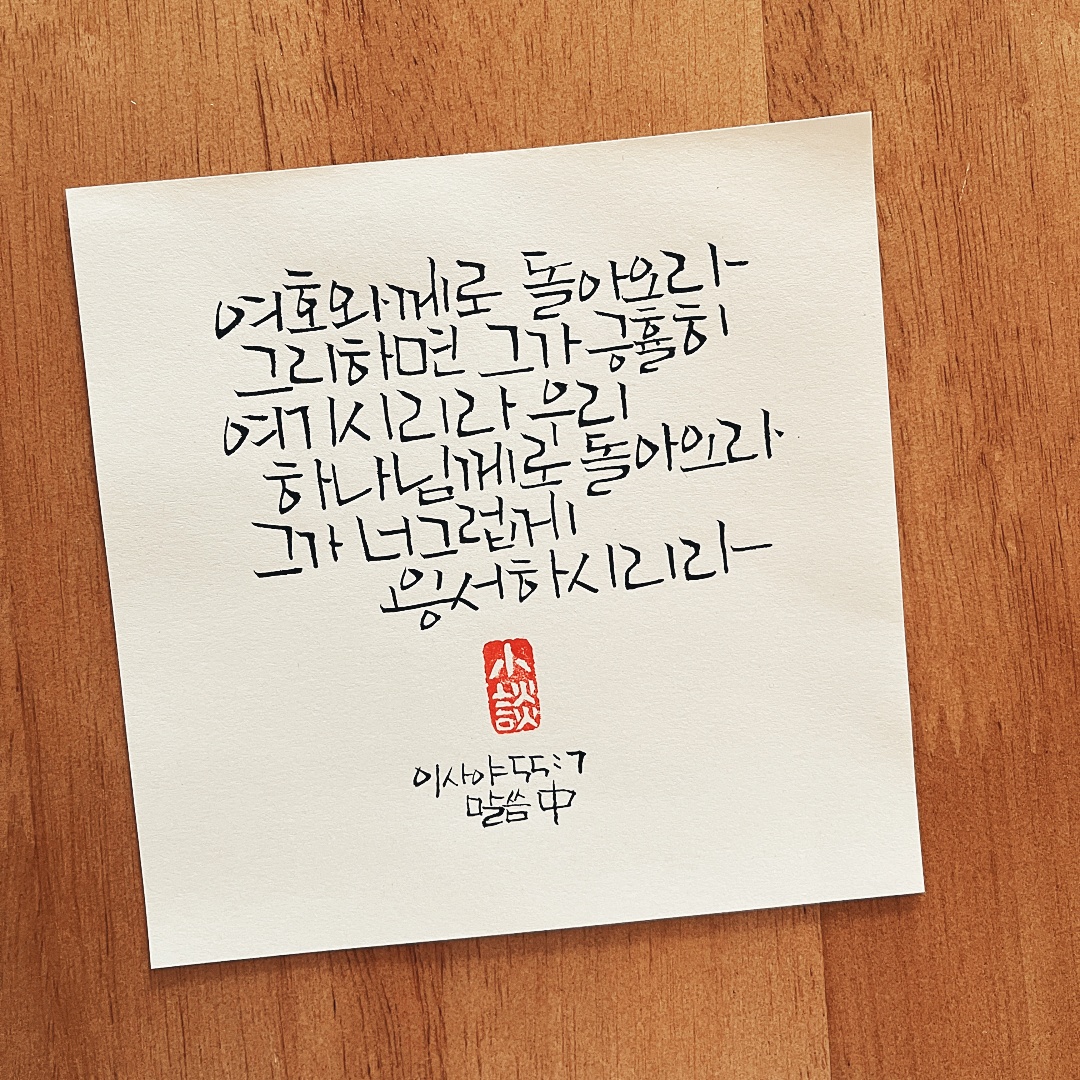 여호와께로 돌아오라
그리하면 그가 긍휼히
여기시리라 우리
하나님께로 돌아오라
그가 너그럽게
용서하시리라
小
談
이사야 55:7
말씀 中